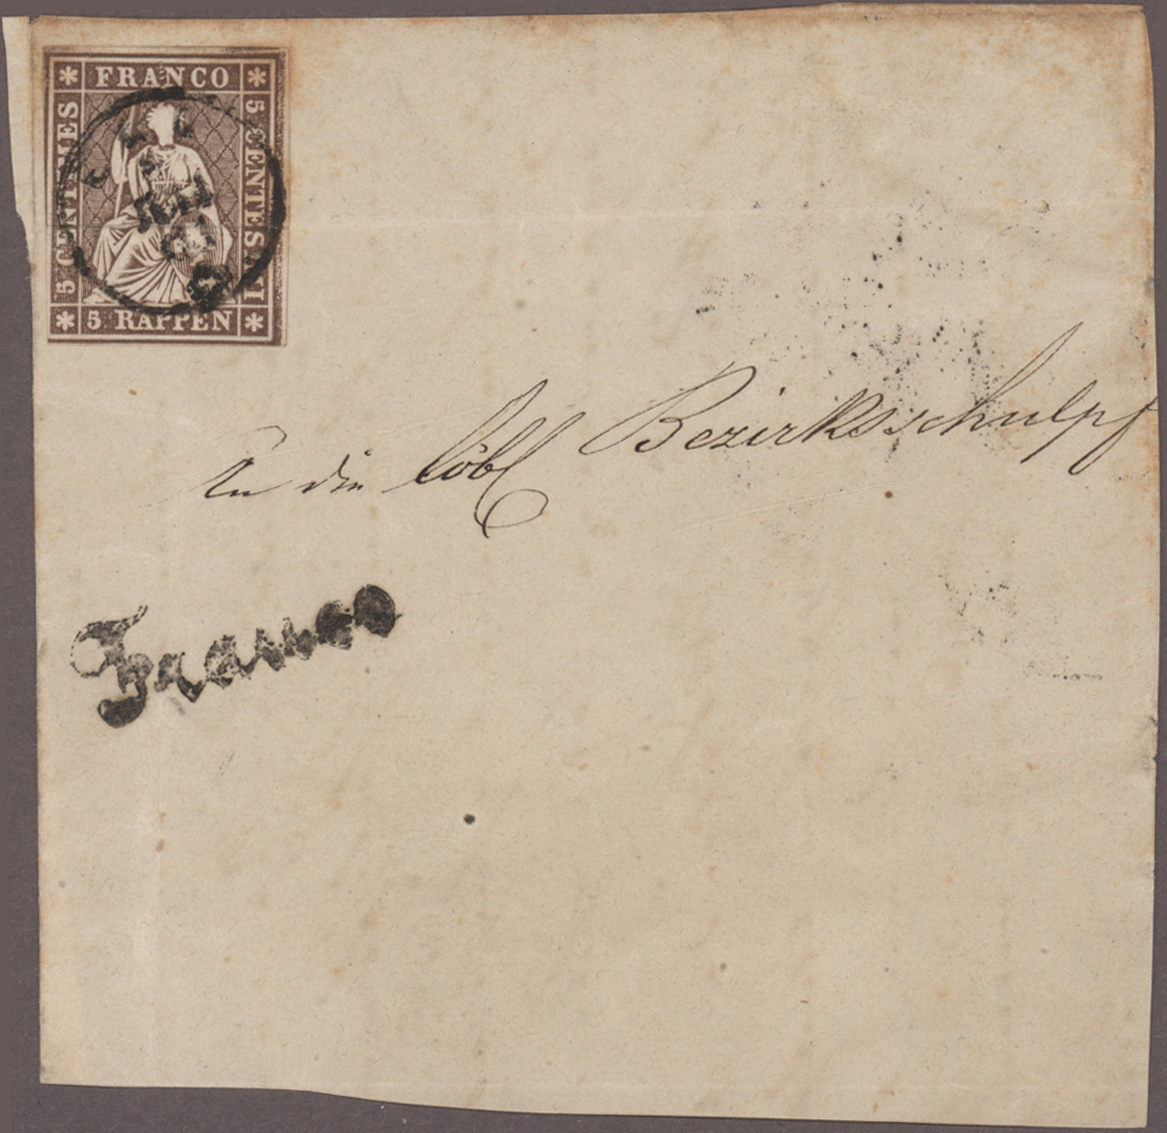 FRANCO
5 CENTIMES
5 CENTESIMI
5 RAPPEN
An die löbl Bezirksschulpf
Franco